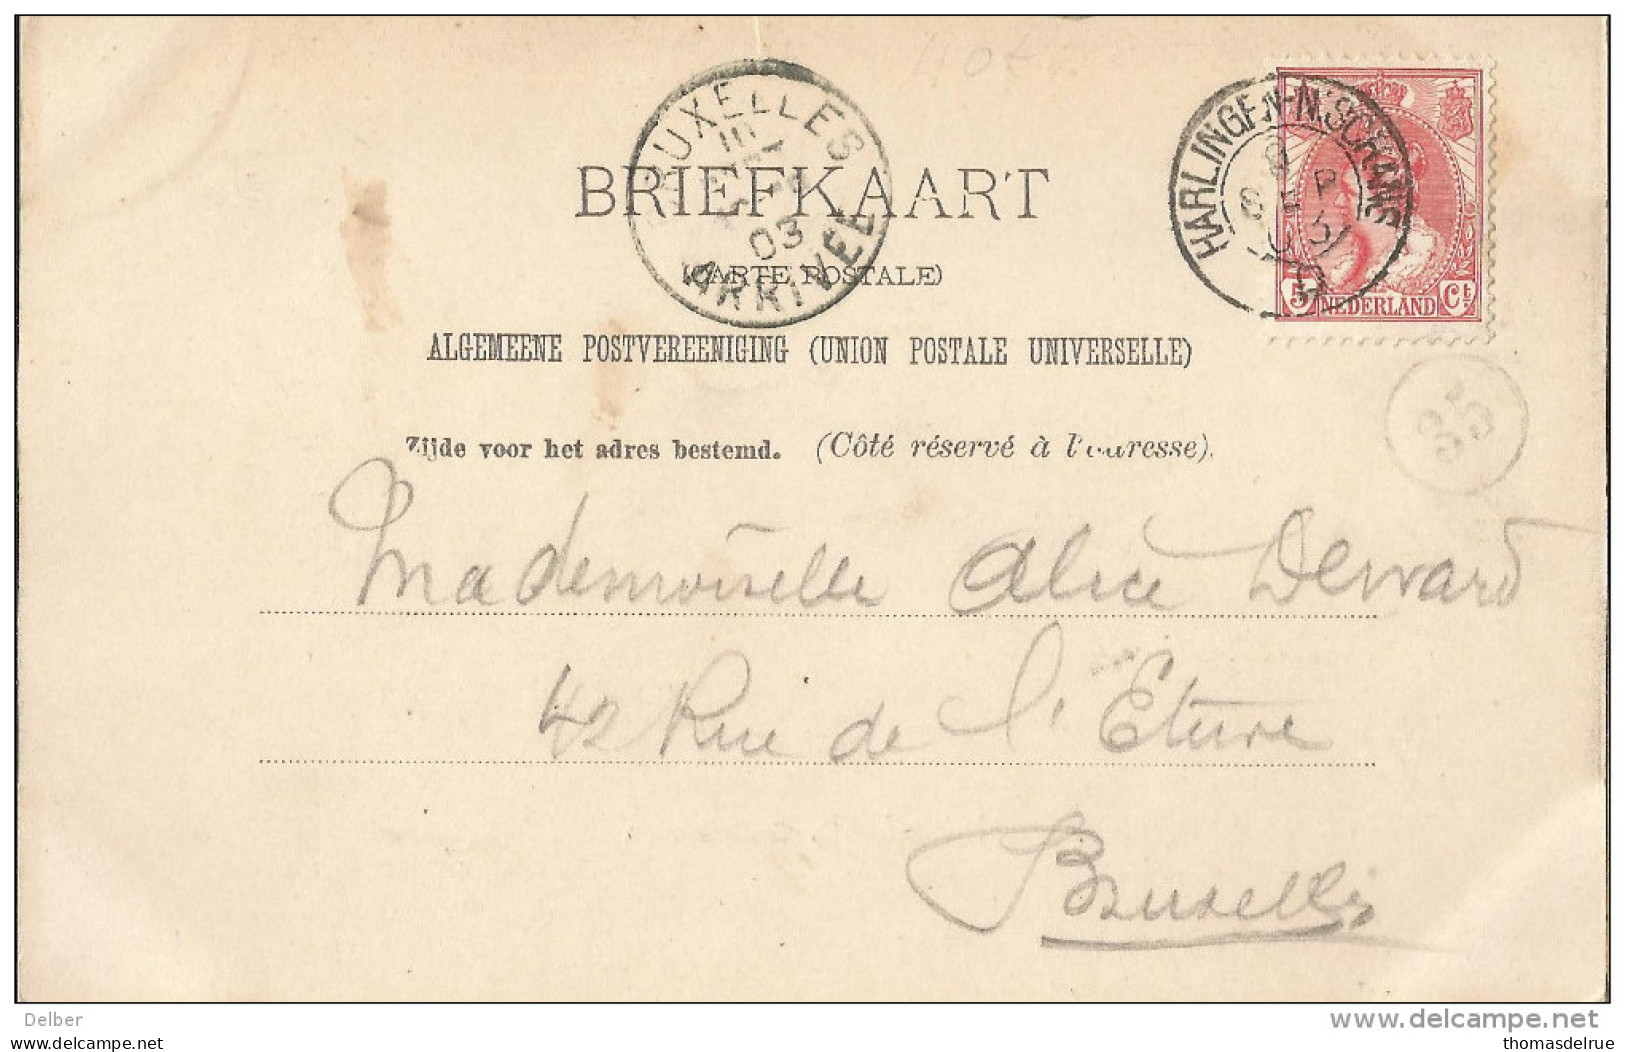 BRUXELLES
03
ARRIVEE
HARLINGEN-N.SCHANS
BRIEFKAART
(CARTE POSTALE)
5 NEDERLAND Ct
ALGEMEENE POSTVEREENIGING (UNION POSTALE UNIVERSELLE)
35
Zijde voor het adres bestemd. (Côté réservé à l'adresse).
Mademoiselle Alice
42 Rue de l'Etuve
Bruxelles
Delber
www.delcampe.net
thomasdelrue